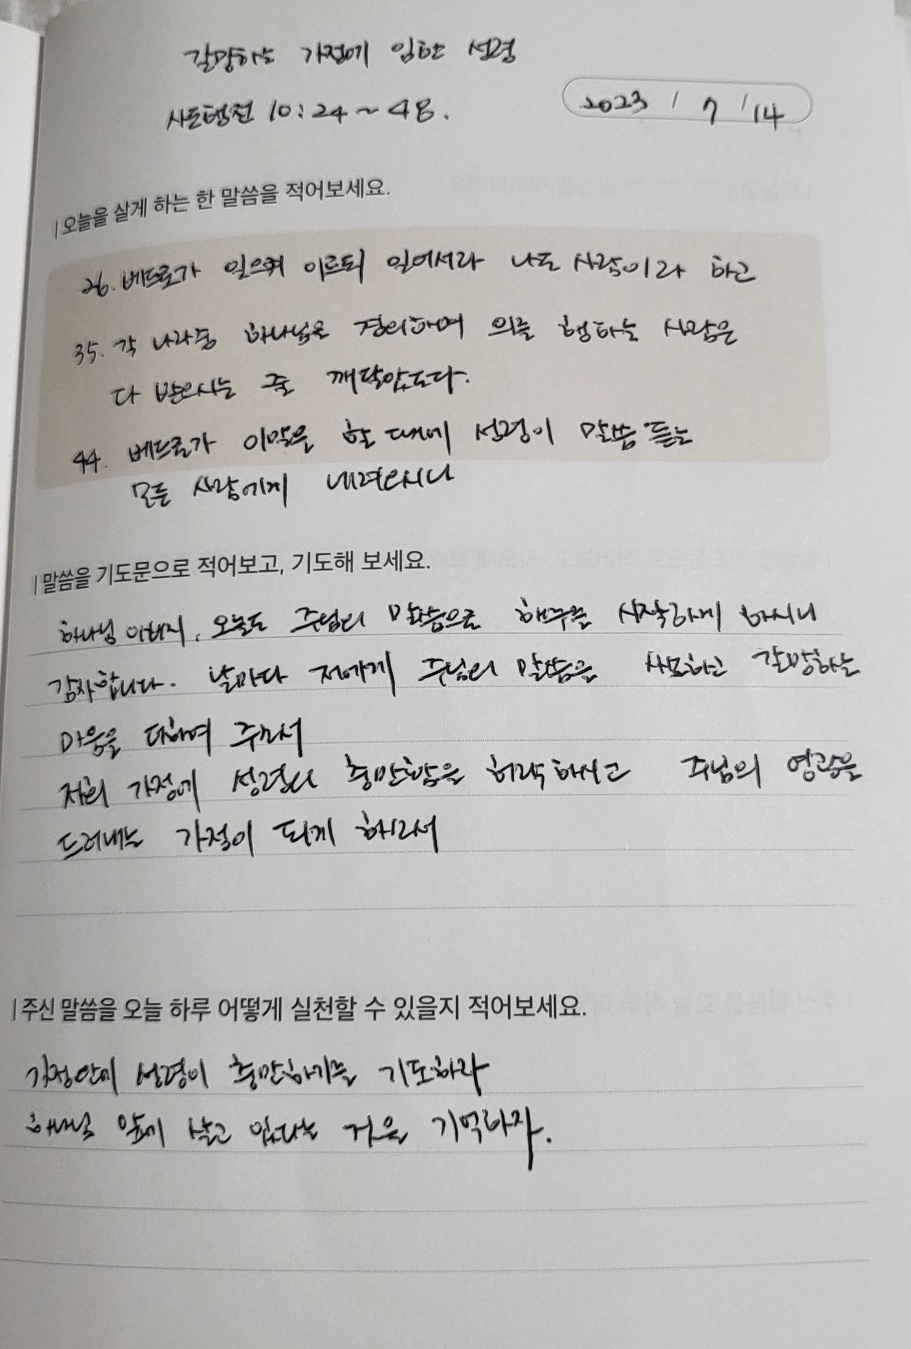 갈망하는 가정에 임한 성령
사도행전 10:24~48.
2023 / 7 / 14
오늘을 살게 하는 한 말씀을 적어보세요.
26. 베드로가 일으켜 이르되 일어서라 나도 사람이라 하고
35. 각 나라중 하나님을 경외하며 의를 행하는 사람은
다 받으시는 줄 깨달았도다.
44. 베드로가 이말을 할 때에 성령이 말씀 듣는
모든 사람에게 내려오시니
말씀을 기도문으로 적어보고, 기도해 보세요.
하나님 아버지, 오늘도 주님의 말씀으로 하루를 시작하게 하시니
감사합니다. 날마다 저에게 주님의 말씀을 사모하고 갈망하는
마음을 더하여 주소서
저희 가정에 성령의 충만함을 허락하시고 주님의 영광을
드러내는 가정이 되게 하소서
주신 말씀을 오늘 하루 어떻게 실천할 수 있을지 적어보세요.
가정안에 성령이 충만하기를 기도하라
하나님 앞에 살고 있다는 것을 기억하자.